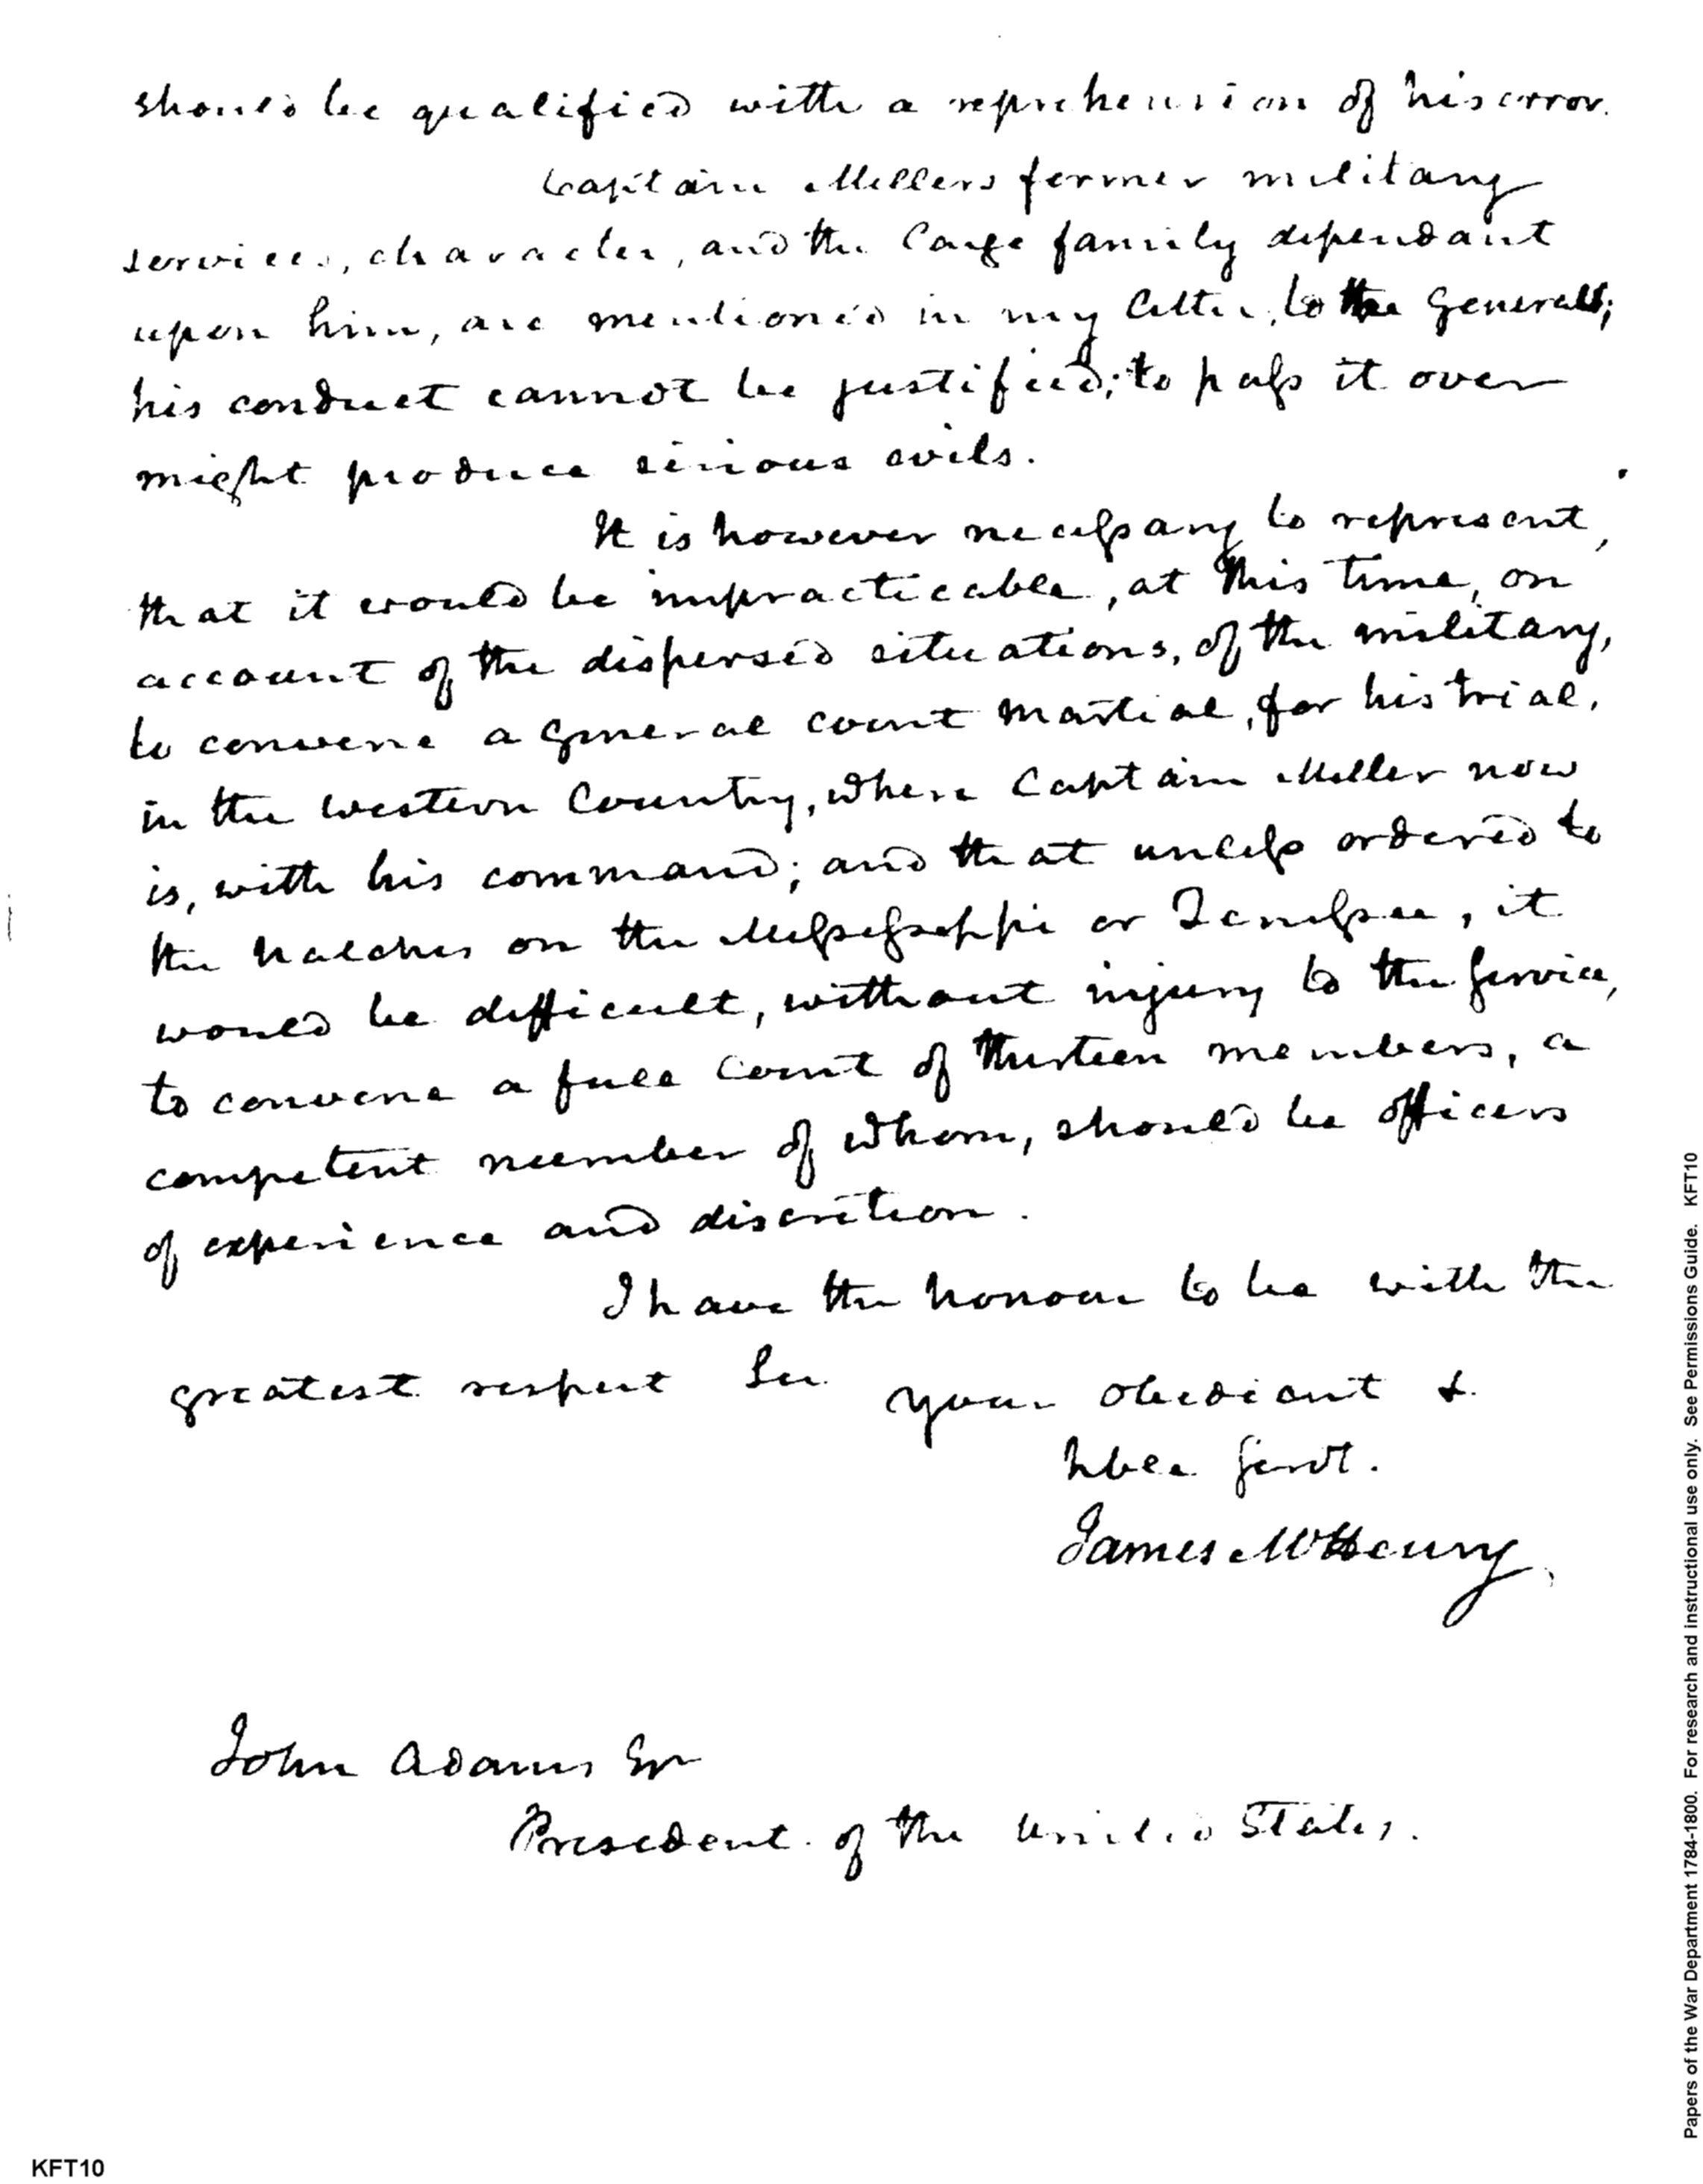 should be qualified with a reprehension of his error.
Captain Millers former military
services, character, and the large family dependant
upon him, are mentioned in my letter, to the Generals;
his conduct cannot be justified; to pass it over
might produce serious evils.
It is however necessary to represent,
that it would be impracticable, at this time, on
account of the dispersed situations, of the military,
to convene a general court martial, for his trial,
in the western Country, where Captain Miller now
is, with his command; and that unless ordered to
the Natches on the Missessippi or Tenessee, it
would be difficult, without injury to the service,
to convene a full Court of thirteen members, a
competent number of whom, should be officers
of experience and discretion.
I have the honour to be with the
greatest respect Sir your obedient &
hble servt.
James McHenry.
John Adams Esqr
President of the United States.
Papers of the War Department 1784-1800. For research and instructional use only. See Permissions Guide. KFT10
KFT10